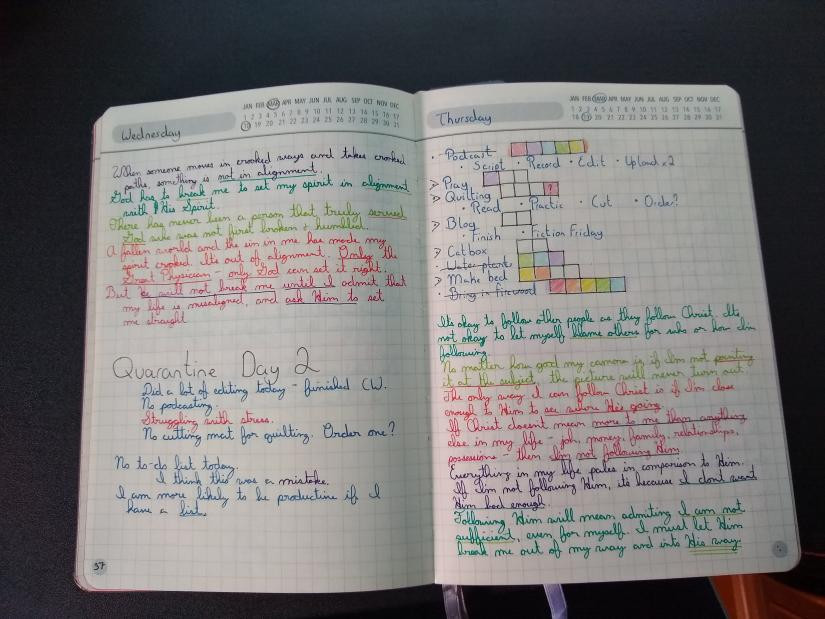 Wednesday
JAN FEB MAR APR MAY JUN JUL AUG SEP OCT NOV DEC
1 2 3 4 5 6 7 8 9 10 11 12 13 14 15 16 17
18 19 20 21 22 23 24 25 26 27 28 29 30 31
When someone moves in crooked ways and takes crooked
paths, something is not in alignment.
God has to break me to set my spirit in alignment
with His Spirit.
There has never been a person that truly served
God who was not first broken & humbled.
A fallen world and the sin in me has made my
spirit croked. Its out of alignment. Only the
Great Physician - only God can set it right.
But He will not break me until I admit that
my life is misaligned, and ask Him to set
me straight
Quarantine Day 2
Did a lot of editing today - finished CW.
No podcasting.
Struggling with stress.
No cutting mat for quilting. Order one?
No to-do list today.
I think this was a mistake.
I am more likely to be productive if I
have a list.
57
Thursday
JAN FEB MAR APR MAY JUN JUL AUG SEP OCT NOV DEC
1 2 3 4 5 6 7 8 9 10 11 12 13 14 15 16 17
18 19 20 21 22 23 24 25 26 27 28 29 30 31
· Podcast
· Script · Record · Edit · Upload x2
> Pray
> Quilting ?
· Read · Practic · Cut · Order?
> Blog
· Finish · Fiction Friday
> Catbox
· Water plants
> Make bed
· Bring in firewood
Its okay to follow other people as they follow Christ. Its
not okay to let myself blame others for who or how Im
following.
No matter how good my camera is if Im not pointing
it at the subject the picture will never turn out.
The only way I can follow Christ is if Im close
enough to Him to see where He's going
If Christ doesnt mean more to me than anything
else in my life - job, money, family, relationships,
possessions - then Im not following Him.
Everything in my life pales in comparison to Him.
If Im not following Him, its because I dont want
Him bad enough.
Following Him will mean admiting I am not
sufficient, even for myself. I must let Him
break me out of my way and into His way.